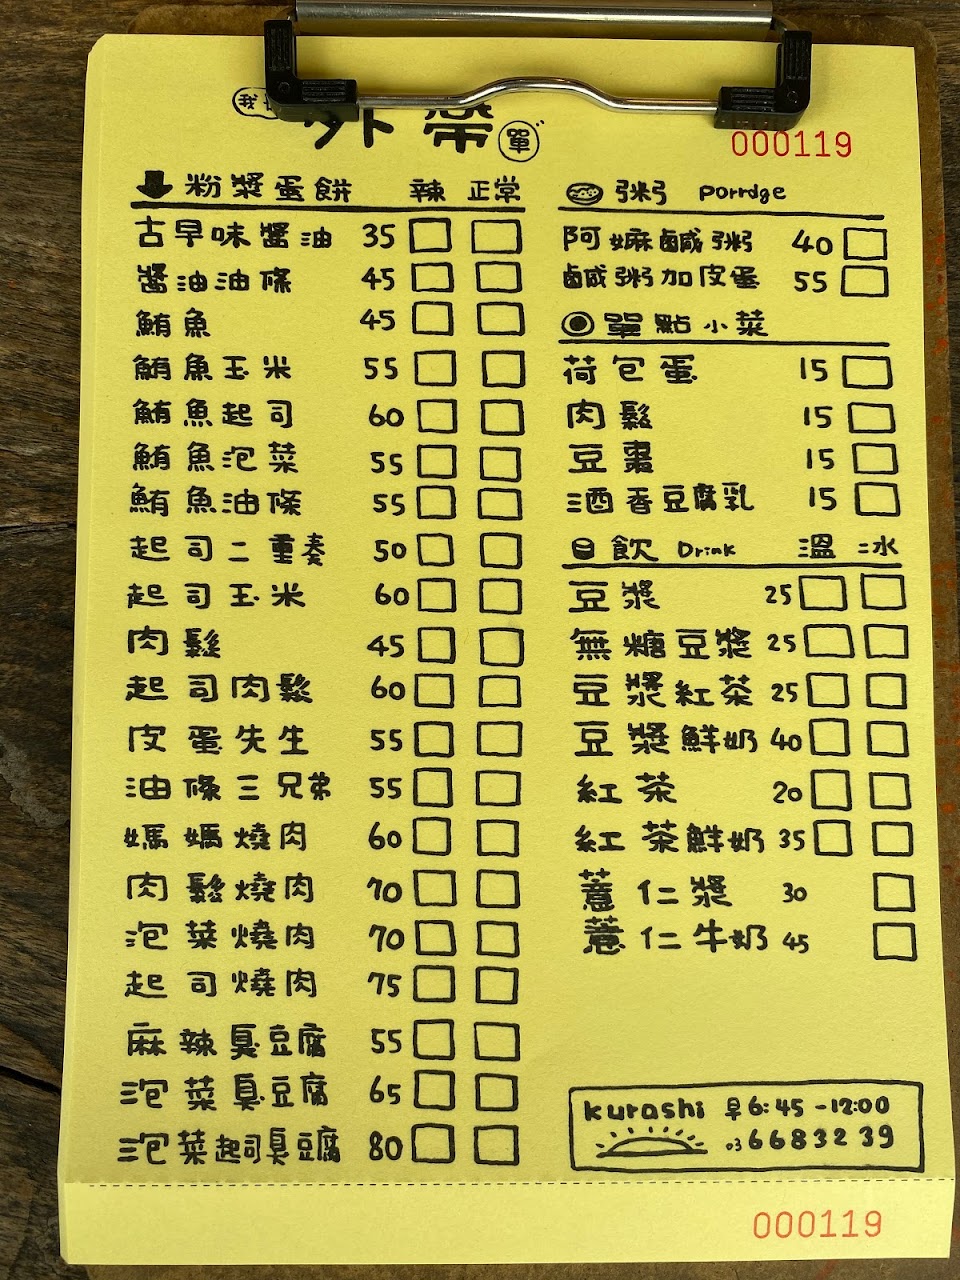 我
外帶單
000119
粉漿蛋餅 辣 正常
古早味醬油 35
醬油油條 45
鮪魚 45
鮪魚玉米 55
鮪魚起司 60
鮪魚泡菜 55
鮪魚油條 55
起司二重奏 50
起司玉米 60
肉鬆 45
起司肉鬆 60
皮蛋先生 55
油條三兄弟 55
媽媽燒肉 60
肉鬆燒肉 70
泡菜燒肉 70
起司燒肉 75
麻辣臭豆腐 55
泡菜臭豆腐 65
泡菜起司臭豆腐 80
粥 Porrdge
阿嬤鹹粥 40
鹹粥加皮蛋 55
單點小菜
荷包蛋 15
肉鬆 15
豆棗 15
酒香豆腐乳 15
飲 Drink 溫 冰
豆漿 25
無糖豆漿 25
豆漿紅茶 25
豆漿鮮奶 40
紅茶 20
紅茶鮮奶 35
薏仁漿 30
薏仁牛奶 45
kurashi 早6:45-12:00
03 6683239
000119